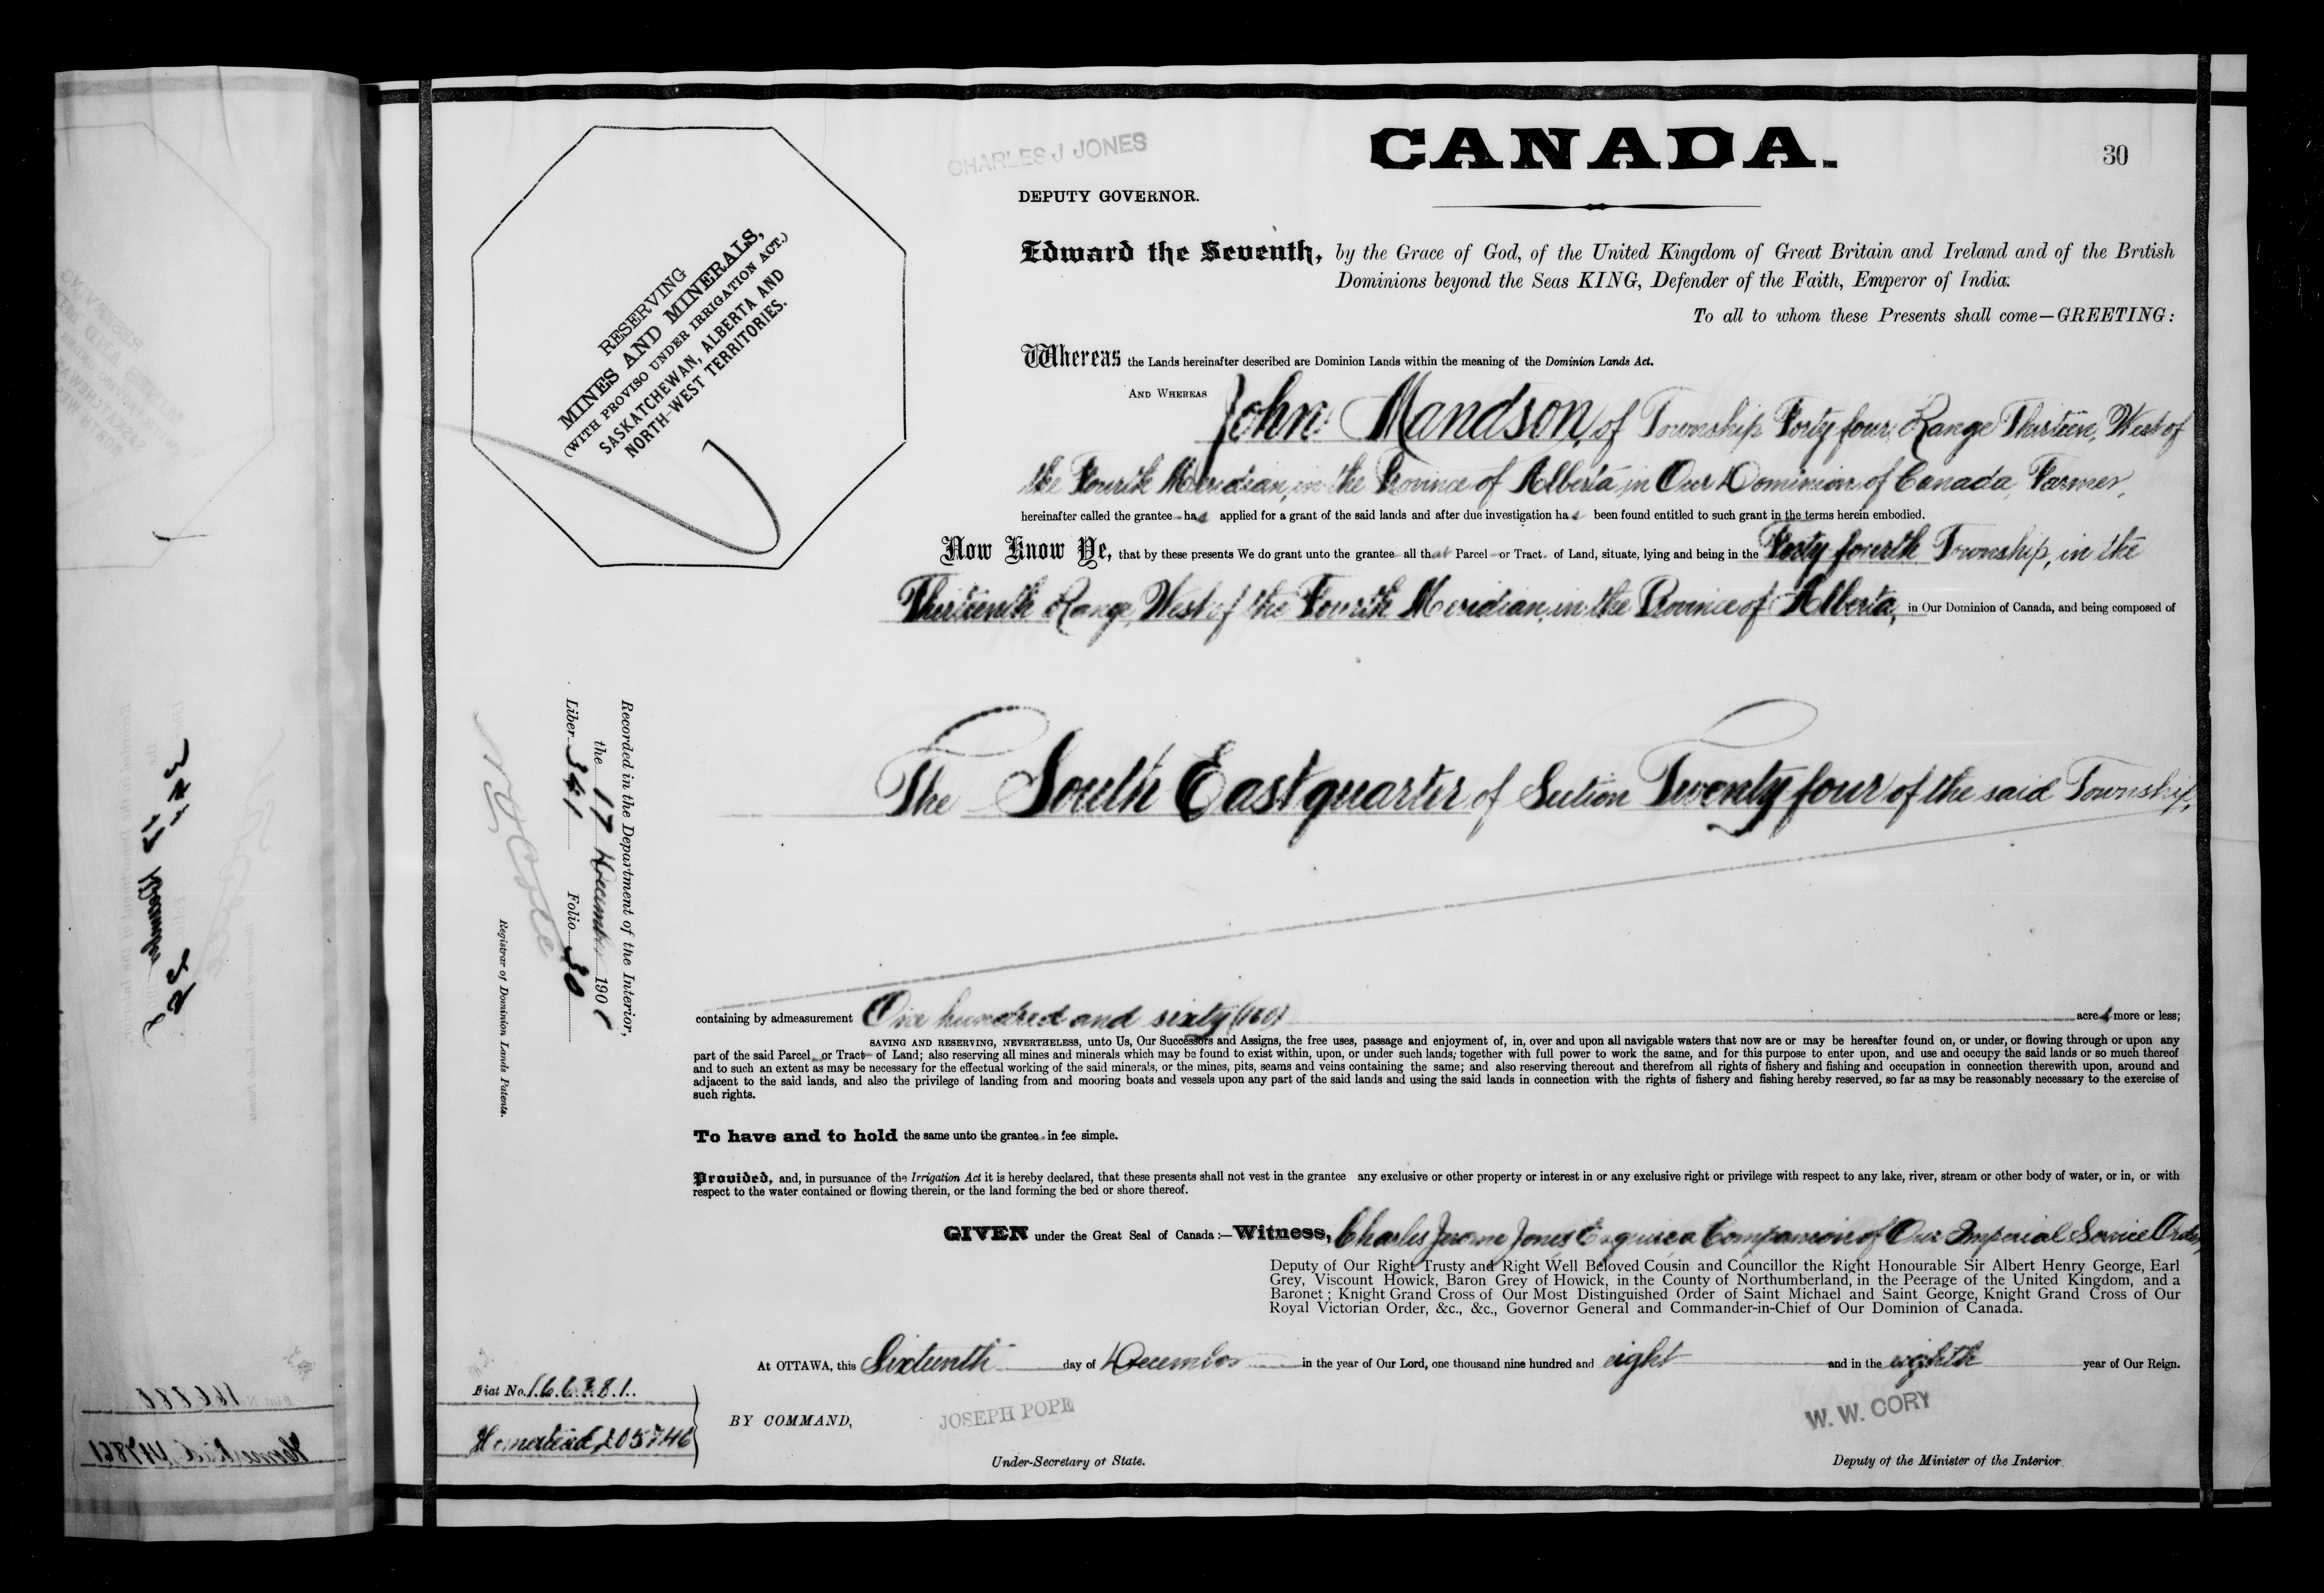 CHARLES J JONES
CANADA.
30
DEPUTY GOVERNOR.
RESERVING
MINES AND MINERALS,
(WITH PROVISO UNDER IRRIGATION ACT.)
SASKATCHEWAN, ALBERTA AND
NORTH-WEST TERRITORIES.
Edward the Seventh, by the Grace of God, of the United Kingdom of Great Britain and Ireland and of the British
Dominions beyond the Seas KING, Defender of the Faith, Emperor of India.
To all to whom these Presents shall come—GREETING:
Whereas the Lands hereinafter described are Dominion Lands within the meaning of the Dominion Lands Act.
AND WHEREAS John Mandson, of Township Forty four, Range Thirteen, West of
the Fourth Meridian, in the Province of Alberta in Our Dominion of Canada, Farmer,
hereinafter called the grantee has applied for a grant of the said lands and after due investigation has been found entitled to such grant in the terms herein embodied.
Now Know Ye, that by these presents We do grant unto the grantee all that Parcel or Tract of Land, situate, lying and being in the Forty fourth Township, in the
Thirteenth Range, West of the Fourth Meridian, in the Province of Alberta, in Our Dominion of Canada, and being composed of
The South East quarter of Section Twenty four of the said Township,
Recorded in the Department of the Interior,
the 17 December 1908
Liber 341 Folio 30
Registrar of Dominion Lands Patents.
containing by admeasurement One hundred and sixty (160) acres more or less;
SAVING AND RESERVING, NEVERTHELESS, unto Us, Our Successors and Assigns, the free uses, passage and enjoyment of, in, over and upon all navigable waters that now are or may be hereafter found on, or under, or flowing through or upon any
part of the said Parcel or Tract of Land; also reserving all mines and minerals which may be found to exist within, upon, or under such lands, together with full power to work the same, and for this purpose to enter upon, and use and occupy the said lands or so much thereof
and to such an extent as may be necessary for the effectual working of the said minerals, or the mines, pits, seams and veins containing the same; and also reserving thereout and therefrom all rights of fishery and fishing and occupation in connection therewith upon, around and
adjacent to the said lands, and also the privilege of landing from and mooring boats and vessels upon any part of the said lands and using the said lands in connection with the rights of fishery and fishing hereby reserved, so far as may be reasonably necessary to the exercise of
such rights.
To have and to hold the same unto the grantee in fee simple.
Provided, and, in pursuance of the Irrigation Act it is hereby declared, that these presents shall not vest in the grantee any exclusive or other property or interest in or any exclusive right or privilege with respect to any lake, river, stream or other body of water, or in, or with
respect to the water contained or flowing therein, or the land forming the bed or shore thereof.
GIVEN under the Great Seal of Canada:—Witness, Charles Jerome Jones Esquire a Companion of Our Imperial Service Order,
Deputy of Our Right Trusty and Right Well Beloved Cousin and Councillor the Right Honourable Sir Albert Henry George, Earl
Grey, Viscount Howick, Baron Grey of Howick, in the County of Northumberland, in the Peerage of the United Kingdom, and a
Baronet; Knight Grand Cross of Our Most Distinguished Order of Saint Michael and Saint George, Knight Grand Cross of Our
Royal Victorian Order, &c., &c., Governor General and Commander-in-Chief of Our Dominion of Canada.
At OTTAWA, this Sixteenth day of December in the year of Our Lord, one thousand nine hundred and eight and in the eighth year of Our Reign.
Fiat No. 166381.
Homestead, 205746
BY COMMAND,
JOSEPH POPE
Under-Secretary of State.
W. W. CORY
Deputy of the Minister of the Interior.